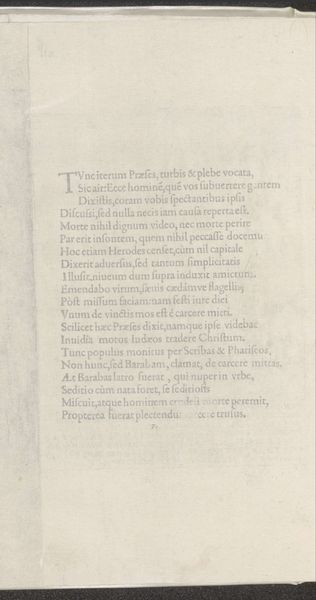 TVnc iterum Præses, turbis & plebe vocata,
Sic ait: Ecce hominē, quē vos subuertere gentem
Dixistis, coram vobis spectantibus ipsi
Discussi, sed nulla necis iam causa reperta est.
Morte nihil dignum video, nec morte perire
Par erit insontem, quem nihil peccasse docemu
Hoc etiam Herodes censet, cùm nil capitale
Dixerit aduersus, sed tantùm simplicitatis
Illusit, niueum dum supra induxit amictum.
Emendabo virum, sæuis cædámve flagellis
Pòst missum faciam: nam festi iure diei
Vnum de vinctis mos est è carcere mitti.
Scilicet hæc Præses dixit, namque ipse videbat
Inuidia motos Iudæos tradere Christum.
Tunc populus monitus per Scribas & Phariseos,
Non hunc, sed Barabam, clamat, de carcere mittas.
Æt Barabas latro fuerat, qui nuper in vrbe,
Seditio cùm nata foret, se seditiosis
Miscuit, atque hominem crudeli morte peremit,
Propterea fuerat plectendus carcere trusus.